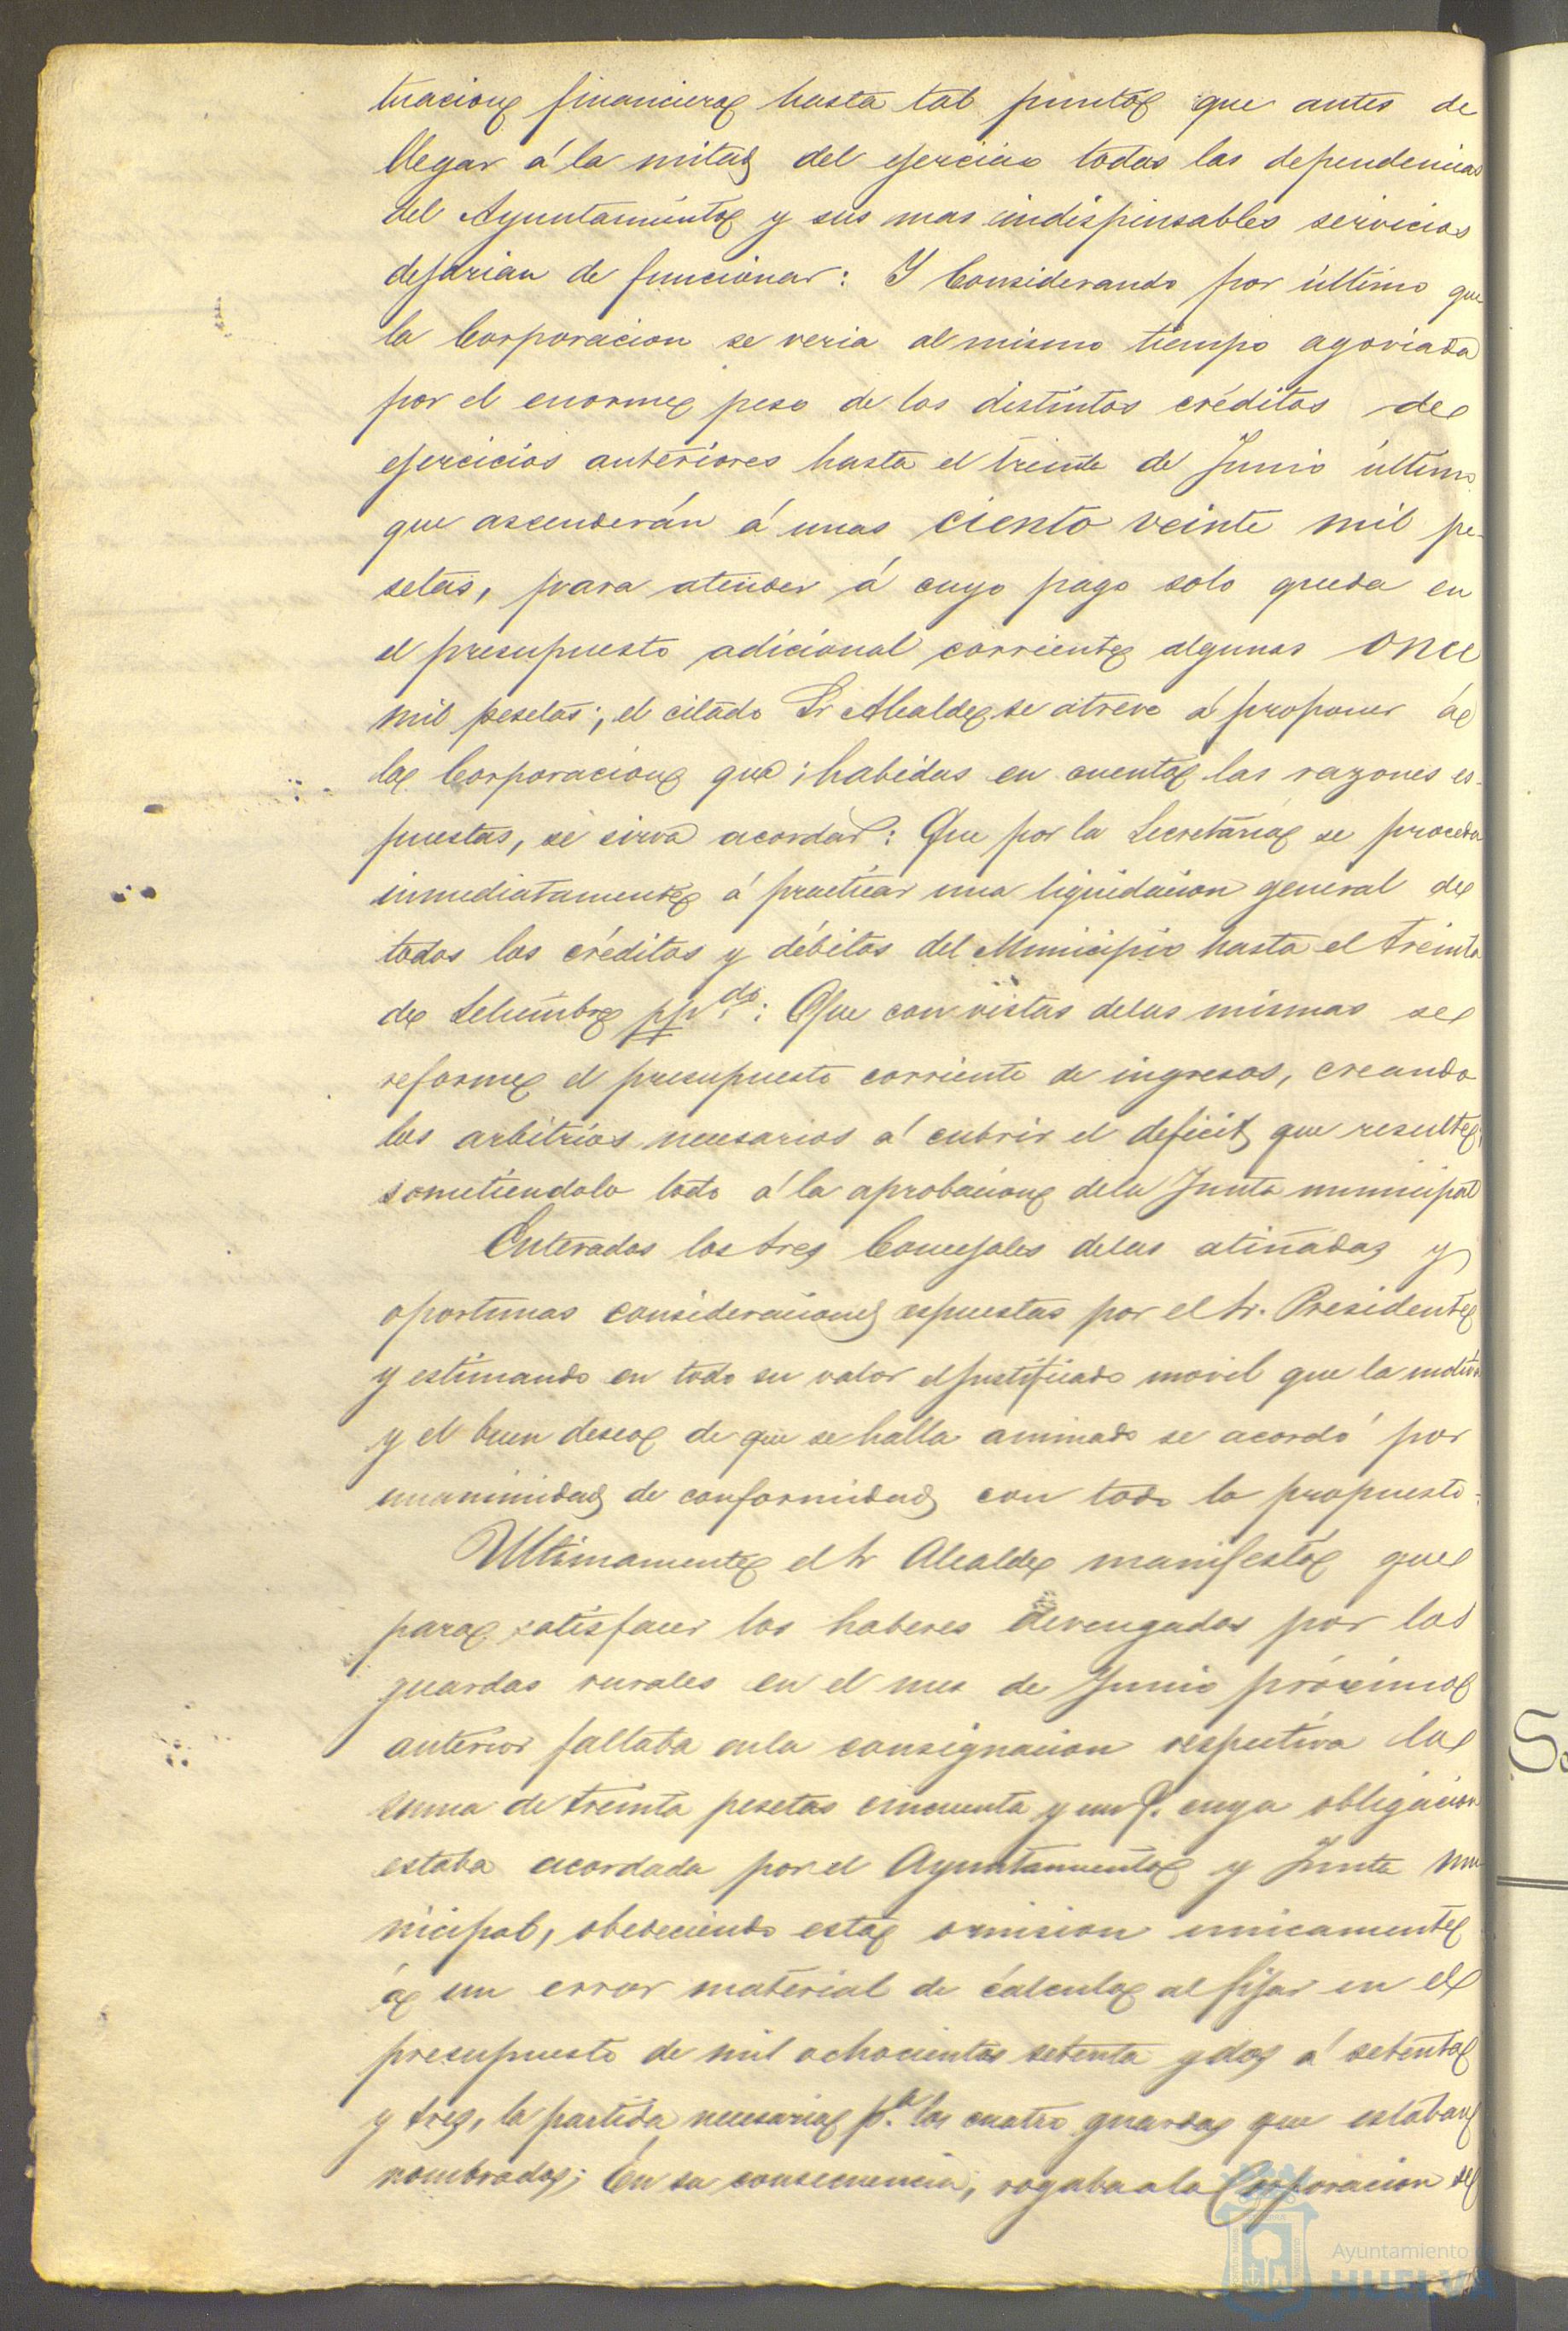 tuacion financiera hasta tal punto que antes de
llegar á la mitad del ejercicio todas las dependencias
del Ayuntamiento y sus mas indispensables servicios
dejarian de funcionar: Y Considerando por último que
la Corporacion se veria al mismo tiempo agoviada
por el enorme peso de los distintos créditos de
ejercicios anteriores hasta el treinta de Junio último
que ascenderán á unas ciento veinte mil pe-
setas, para atender á cuyo pago solo queda en
el presupuesto adicional corriente algunas once
mil pesetas; el citado Sr Alcalde se atreve á proponer á
la Corporacion que; habidas en cuenta las razones es-
puestas, se sirva acordar: Que por la Secretaría se proceda
inmediatamente á practicar una liquidacion general de
todos los créditos y débitos del Municipio hasta el treinta
de Setiembre pp.do: Que con vistas delas mismas se
reforme el presupuesto corriente de ingresos, creando
los arbitrios necesarios á cubrir el deficit que resulte,
sometiendolo todo á la aprobacion dela Junta municipal
Enterados los tres Concejales delas atinadas y
oportunas consideraciones espuestas por el Sr. Presidente
y estimando en todo su valor el justificado movil que la motiva
y el buen deseo de que se halla animado se acordó por
unanimidad de conformidad con todo lo propuesto.
Ultimamente el Sr Alcalde manifestó que
para satisfacer los haberes devengados por los
guardas rurales en el mes de Junio próximo
anterior faltaba enla consignacion respectiva la
suma de treinta pesetas cincuenta y un c. cuya obligacion
estaba acordada por el Ayuntamiento y Junta mu-
nicipal, obedeciendo esta omision unicamente
á un error material de cálculo al fijar en el
presupuesto de mil ochocientos setenta y dos á setenta
y tres, la partida necesaria p.a los cuatro guardas que estaban
nombrados; En su consecuencia, rogaba a la Corporacion se
Ayuntamiento
HUELVA